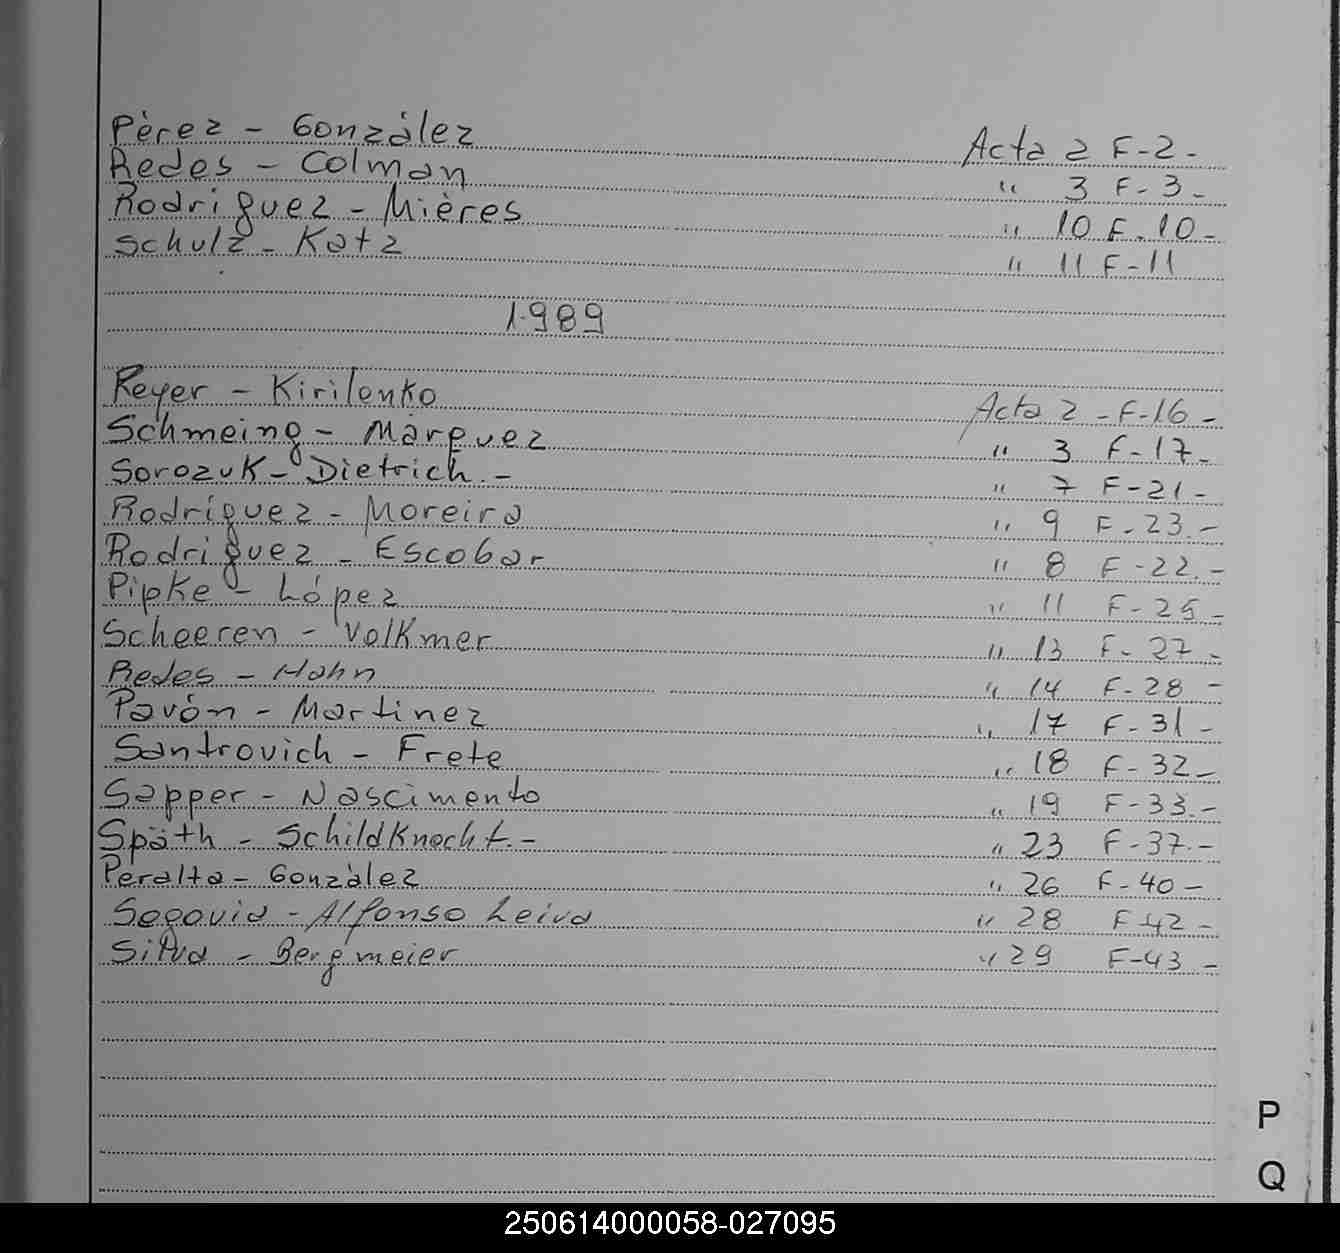 Pèrez - Gonzàlez Acta 2 F-2-
Redes - Colman " 3 F-3-
Rodriguez - Mières " 10 F-10-
Schulz - Katz " 11 F-11
1.989
Reyer - Kirilenko Acta 2 - F-16-
Schmeing - Màrquez " 3 F-17-
Sorozuk - Dietrich.- " 7 F-21-
Rodríguez - Moreira " 9 F-23.-
Rodriguez - Escobar " 8 F-22.-
Pipke - López " 11 F-25-
Scheeren - Volkmer " 13 F-27-
Redes - Hahn " 14 F-28-
Pavón - Martinez " 17 F-31-
Santrovich - Frete " 18 F-32-
Sapper - Nascimento " 19 F-33.-
Späth - Schildknecht.- " 23 F-37.-
Peralta - Gonzàlez " 26 F-40-
Segovia - Alfonso Leiva " 28 F-42-
Silva - Bergmeier " 29 F-43-
P
Q
250614000058-027095